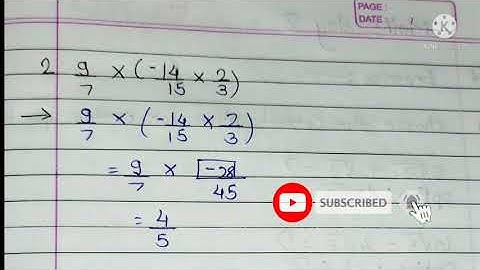 PAGE :
DATE :
2 9/7 × (-14/15 × 2/3)
→ 9/7 × (-14/15 × 2/3)
= 9/7 × -28/45
SUBSCRIBED
= 4/5